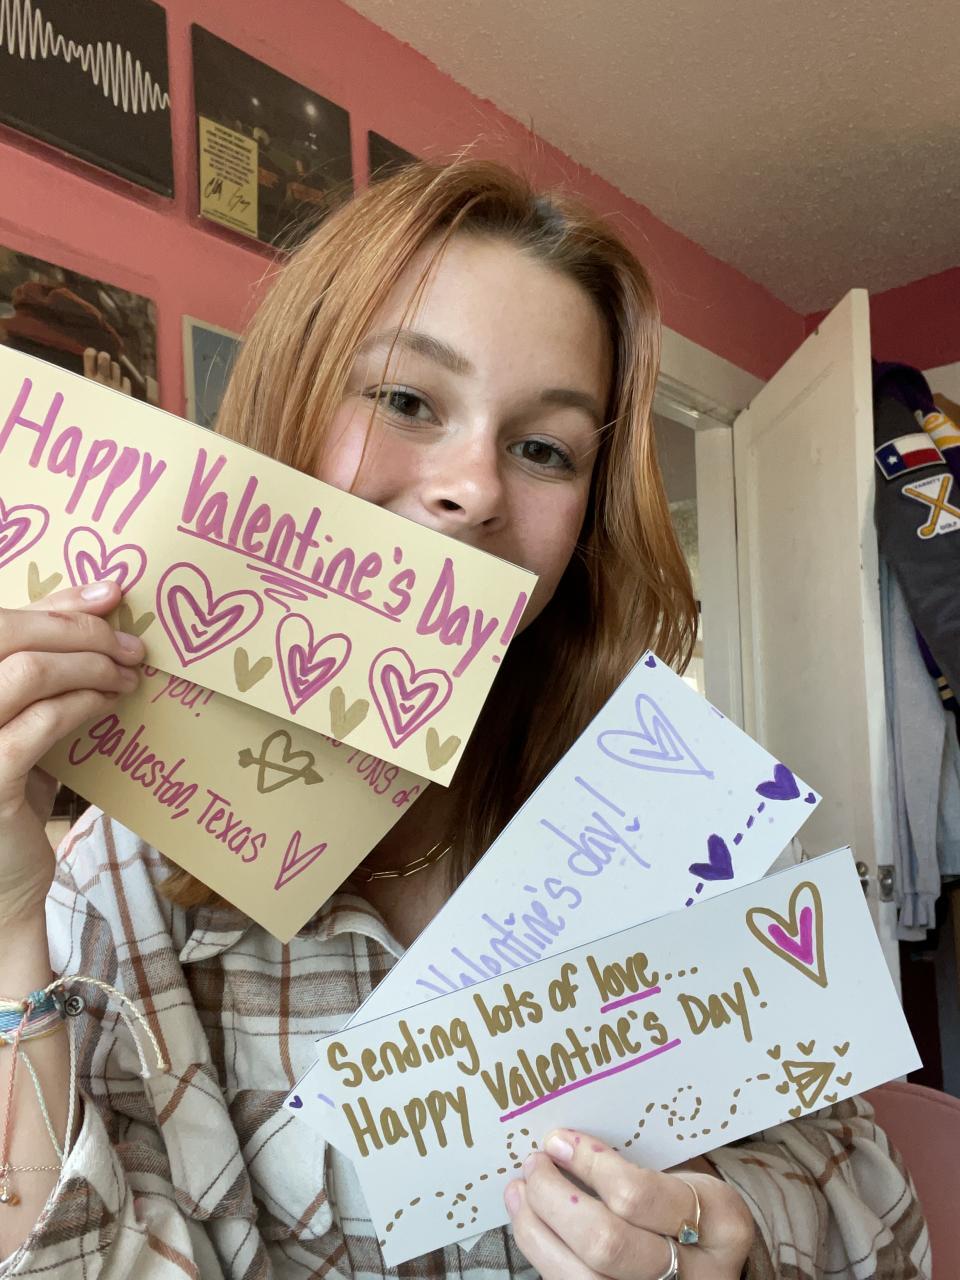 Happy Valentine's Day!
to you!
galveston, Texas
tons of
Valentine's day!
Sending lots of love...
Happy Valentine's Day!
VARSITY
GOLF